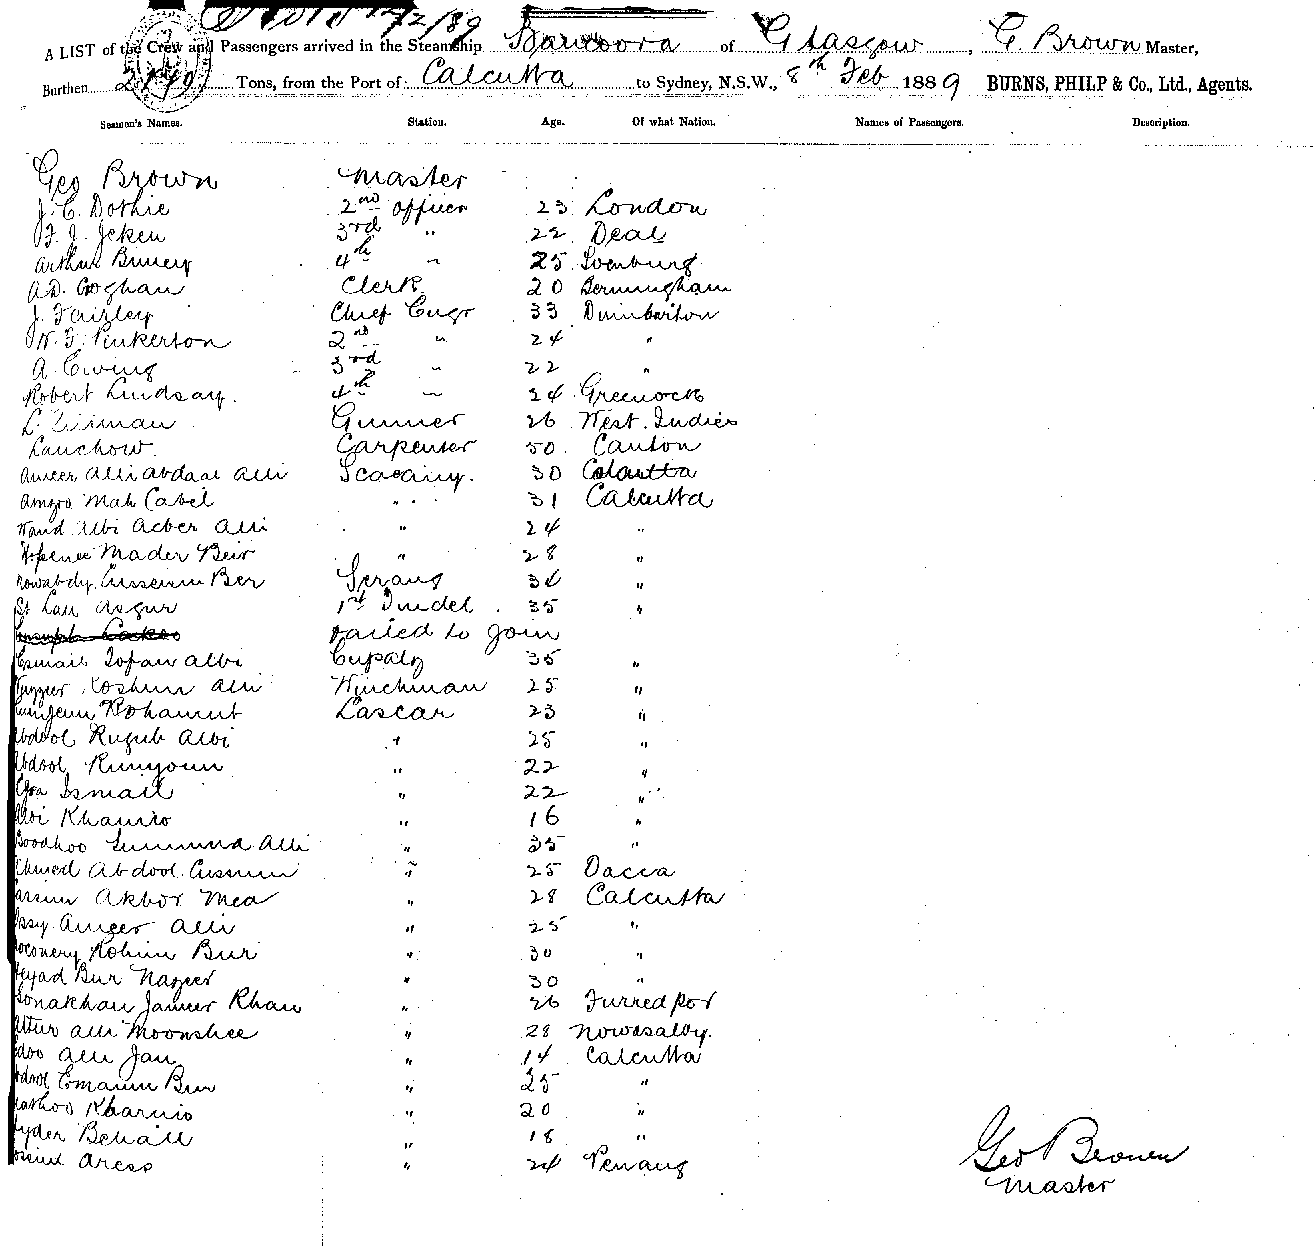 12/2/89
A LIST of the Crew and Passengers arrived in the Steamship Bancoora of Glasgow, G. Brown Master,
Burthen Tons, from the Port of Calcutta to Sydney, N.S.W., 8th Feb 1889 BURNS, PHILP & Co., Ltd., Agents.
Seamen's Names. Station. Age. Of what Nation. Names of Passengers. Description.
Geo Brown Master
J. C. Dothie 2nd Officer 23 London
F. J. Jeken 3rd " 22 Deal
Arthur Binney 4th " 25
A.D. Coghan Clerk 20 Bermingham
J. Fairley Chief Engr 33 Dumbarton
W. F. Pinkerton 2nd " 24 "
A. Ewing 3rd " 22 "
Robert Lindsay. 4th " 24 Greenock
L. Gunner 26 West Indies
Lauchow. Carpenter 50 Canton
Ameer Alli Abdaal Alli 30 Calcutta
Amgro Mah Cabel " 31 Calcutta
Albi Acber Alli " 24 "
Mader Beir " 28 "
Ber Serang 34 "
Lall Asgur 1st Tindel 35 "
Failed to join
Esmail Tofan Albi 35 "
Koshim Alli Winchman 25 "
Rohamut Lascar 23 "
Abdool Rujub Albi " 25 "
Abdool " 22 "
Ismail " 22 "
Khamio " 16 "
Boodhoo Alli " 35 "
Ahmed Abdool " 25 Dacca
Akbor Mea " 28 Calcutta
Ameer Alli " 25 "
Rohim Bur " 30 "
Bur Nazeer " 30 "
Sonakhan Jameer Khan " 26 Furredpor
Alli Moonshee " 28 Nowasally.
Alli Jan " 14 Calcutta
Emamm Bur " 25 "
Khamio " 20 "
" 18 "
Aress " 24 Penang
Geo Brown
Master